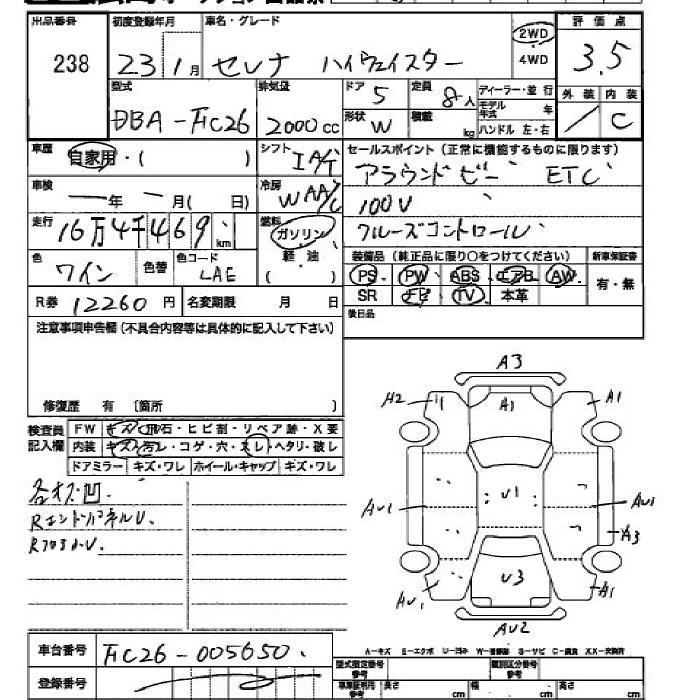 出品番号 初度登録年月 車名・グレード 2WD ・ 4WD 評価点
238 23 1月 セレナ ハイウェイスター 3.5
型式 排気量 ドア 5 定員 8人 ディーラー・並行 外装 内装
DBA-FC26 2000cc 形状 W 積載 kg モデル年式 年 / C
ハンドル 左・右
車歴 自家用・( ) シフト IA/T セールスポイント (正常に機能するものに限ります)
アラウンドビュー ETC
車検 ー年 ー月( 日) 冷房 WAA/C 100V
走行 16万4千469km 燃料 ガソリン クルーズコントロール
軽・油 ( )
色 ワイン 色替 色コード LAE 装備品 (純正品に限り○をつけてください) 新車保証書
PS PW ABS エアB AW 有・無
R券 12260円 名変期限 月 日 SR ナビ TV 本革
注意事項申告欄 (不具合内容等は具体的に記入して下さい) 後日品
修復歴 有 〔箇所 〕
検査員記入欄 FW キズ・飛石・ヒビ割・リペア跡・X要
内装 キズ・汚レ・コゲ・穴・スレ・ヘタリ・破レ
ドアミラー キズ・ワレ ホイール・キャップ キズ・ワレ
各オス凹.
RエンドパネルU.
RフロアU.
A3
A2 A1 A1
AU1 U1 AU1
A3
AU1 U3 A1
AU2
A-キズ E-エクボ U-凹み W-補修跡 S-サビ C-腐食 XX-交換済
車台番号 FC26-005650
登録番号
型式指定番号 類別区分番号
車庫証明用参考 長さ cm 幅 cm 高さ cm